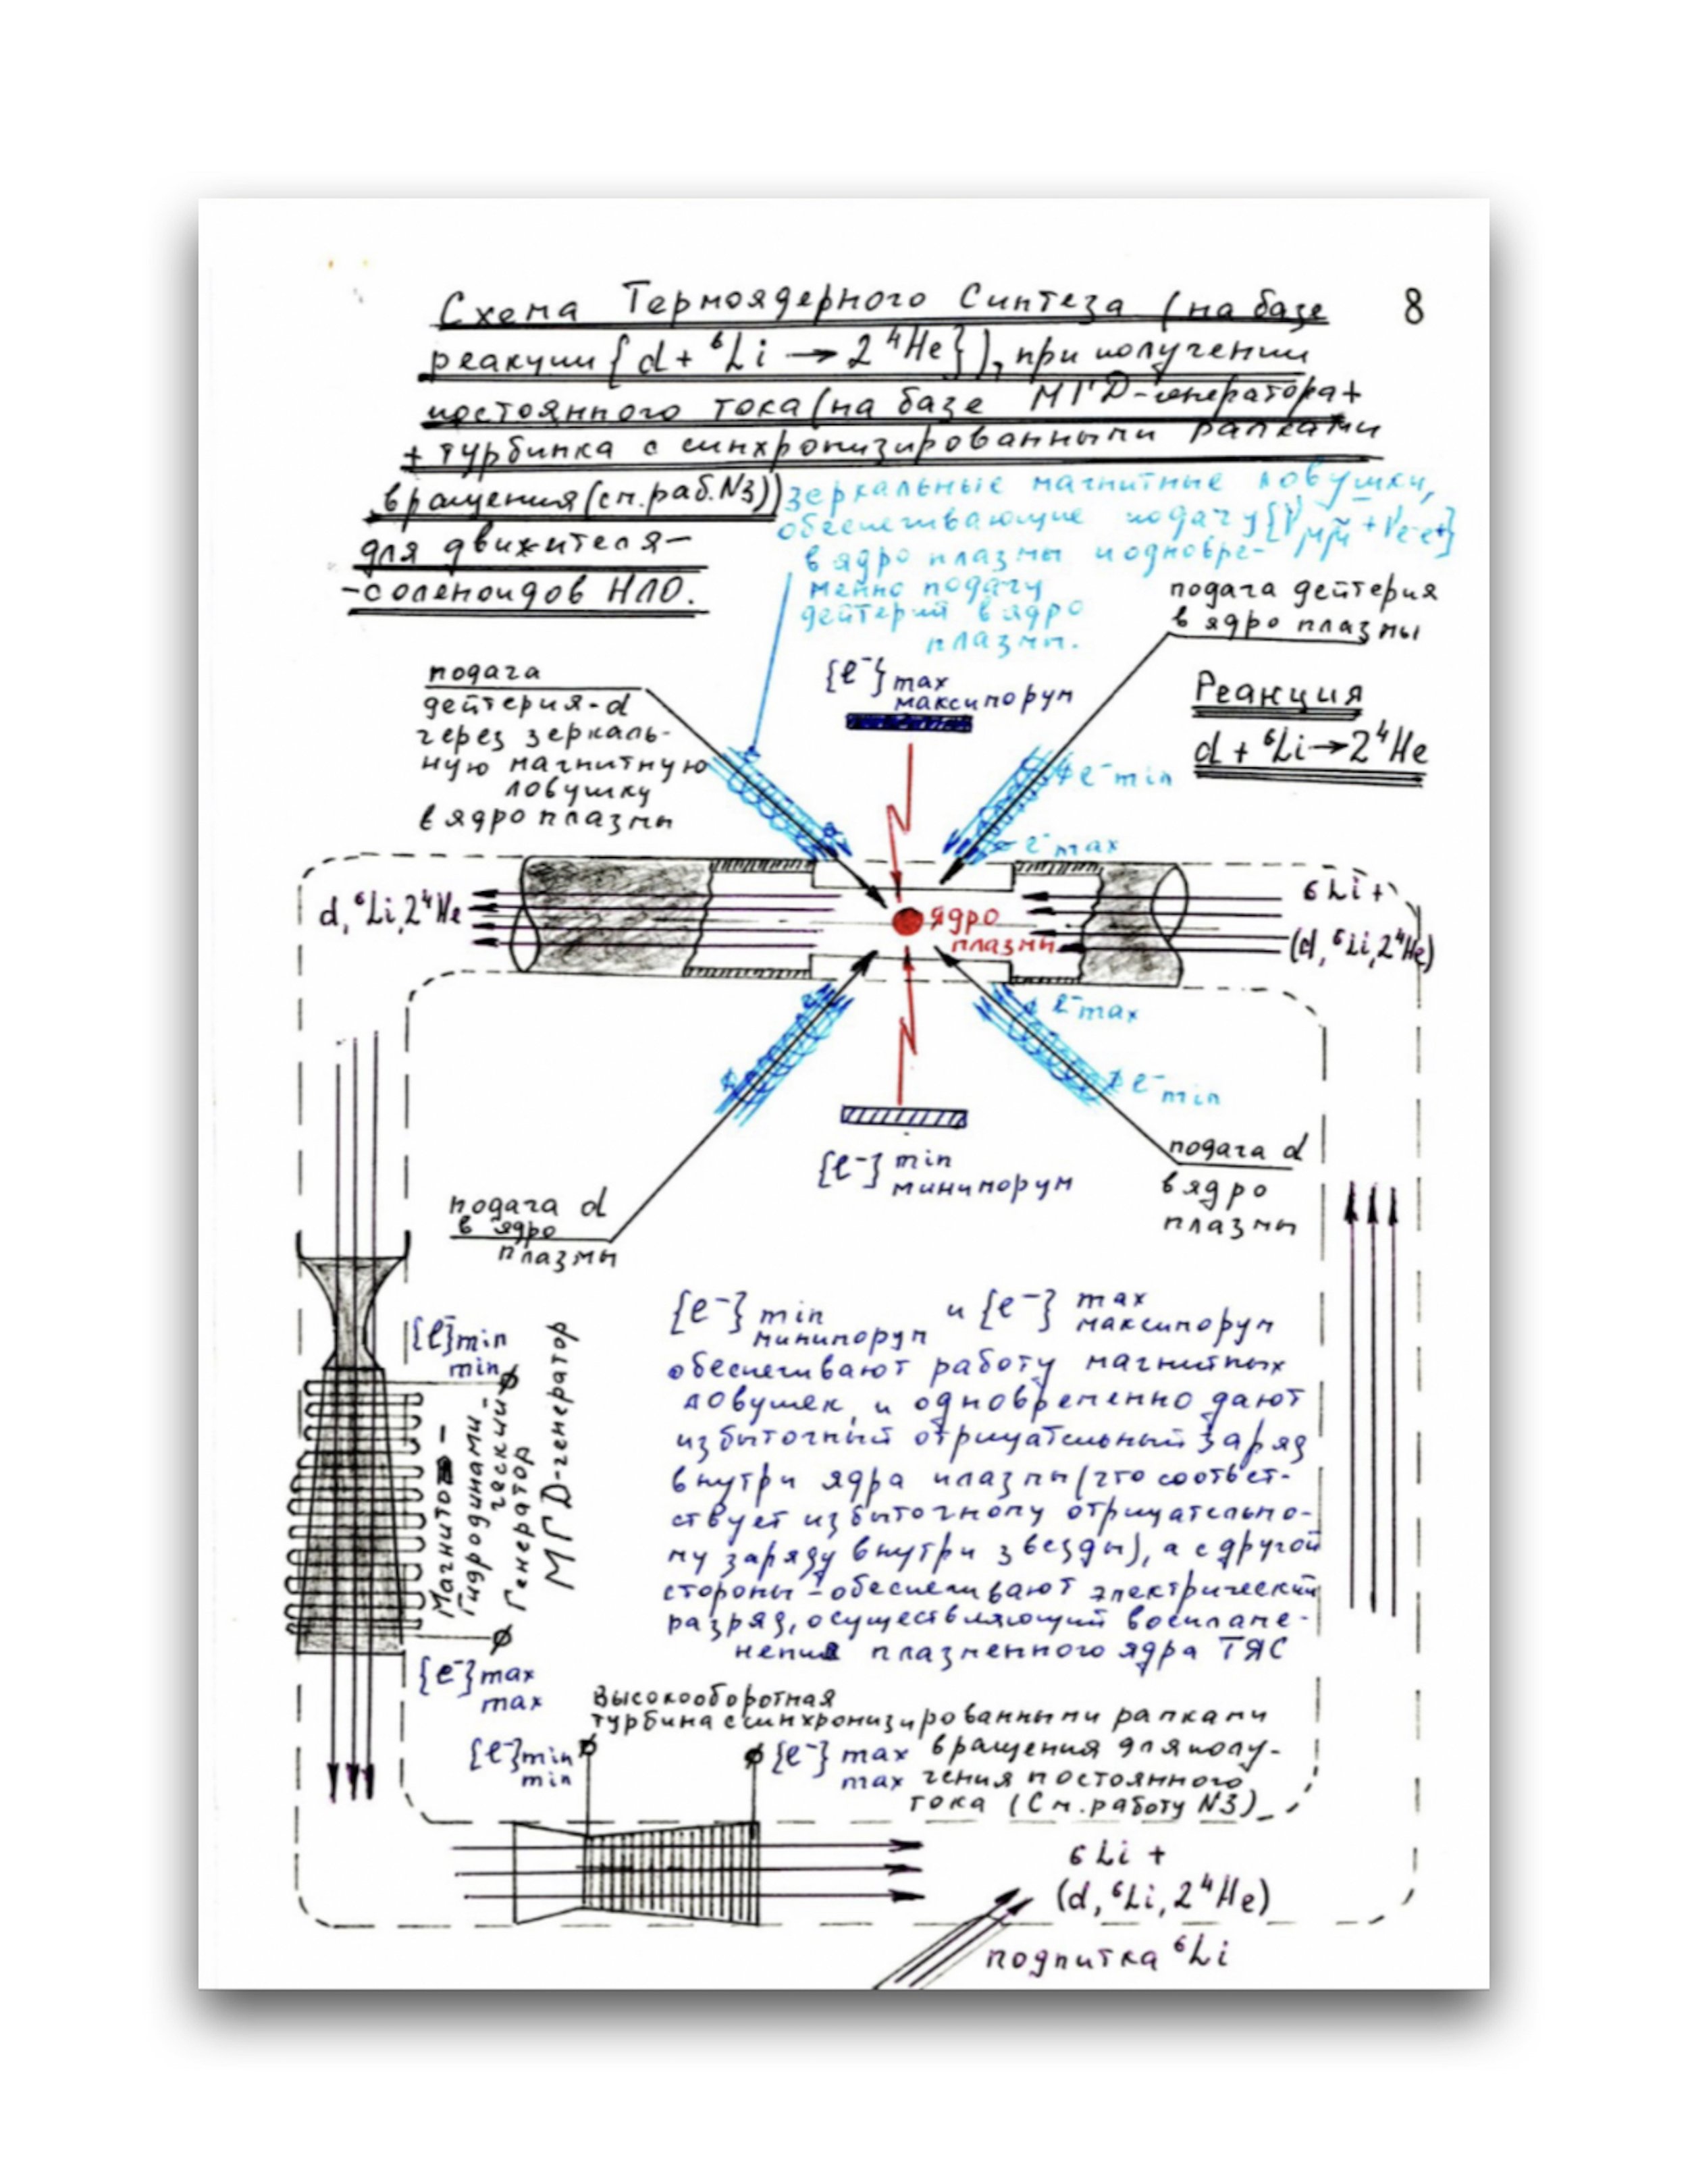 8
Схема Термоядерного Синтеза (на базе
реакции {d + ⁶Li → 2 ⁴He}), при получении
постоянного тока (на базе МГД-генератора +
+ турбинка с синхронизированными рамками
вращения (см. раб. N3))
для движителя-
-соленоидов НЛО.
зеркальные магнитные ловушки,
обеспечивающие подачу
в ядро плазмы и одновре-
менно подачу
дейтерий в ядро
плазмы.
подача дейтерия
в ядро плазмы
подача
дейтерия-d
через зеркаль-
ную магнитную
ловушку
в ядро плазмы
{e⁻} max
максиморум
Реакция
d + ⁶Li → 2⁴He
e⁻ min
e⁻ max
d, ⁶Li, 2⁴He
ядро
плазмы
6Li +
(d, ⁶Li, 2⁴He)
e⁻ max
e⁻ min
{e⁻} min
миниморум
подача d
в ядро
плазмы
подача d
в ядро
плазмы
{e⁻} min
миниморум и {e⁻} max
максиморум
обеспечивают работу магнитных
ловушек, и одновременно дают
избыточный отрицательный заряд
внутри ядра плазмы (что соответ-
ствует избыточному отрицательно-
му заряду внутри звезды), а с другой
стороны – обеспечивают электрический
разряд, осуществляющий воспламе-
нения плазменного ядра ТЯС
{e⁻} min
min
Магнито-
Гидродинами-
ческий
Генератор
МГД-генератор
{e⁻} max
max
Высокооборотная
турбина с синхронизированными рамками
вращения для полу-
чения постоянного
тока (См. работу N3)
{e⁻} min
min
{e⁻} max
max
6Li +
(d, ⁶Li, 2⁴He)
подпитка ⁶Li